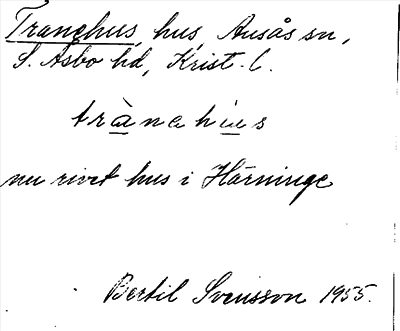 Tranehus, hus, Ausås sn,
S. Åsbo hd, Krist. l.
tràne hus
nu rivet hus i Härninge
Bertil Svensson 1955.